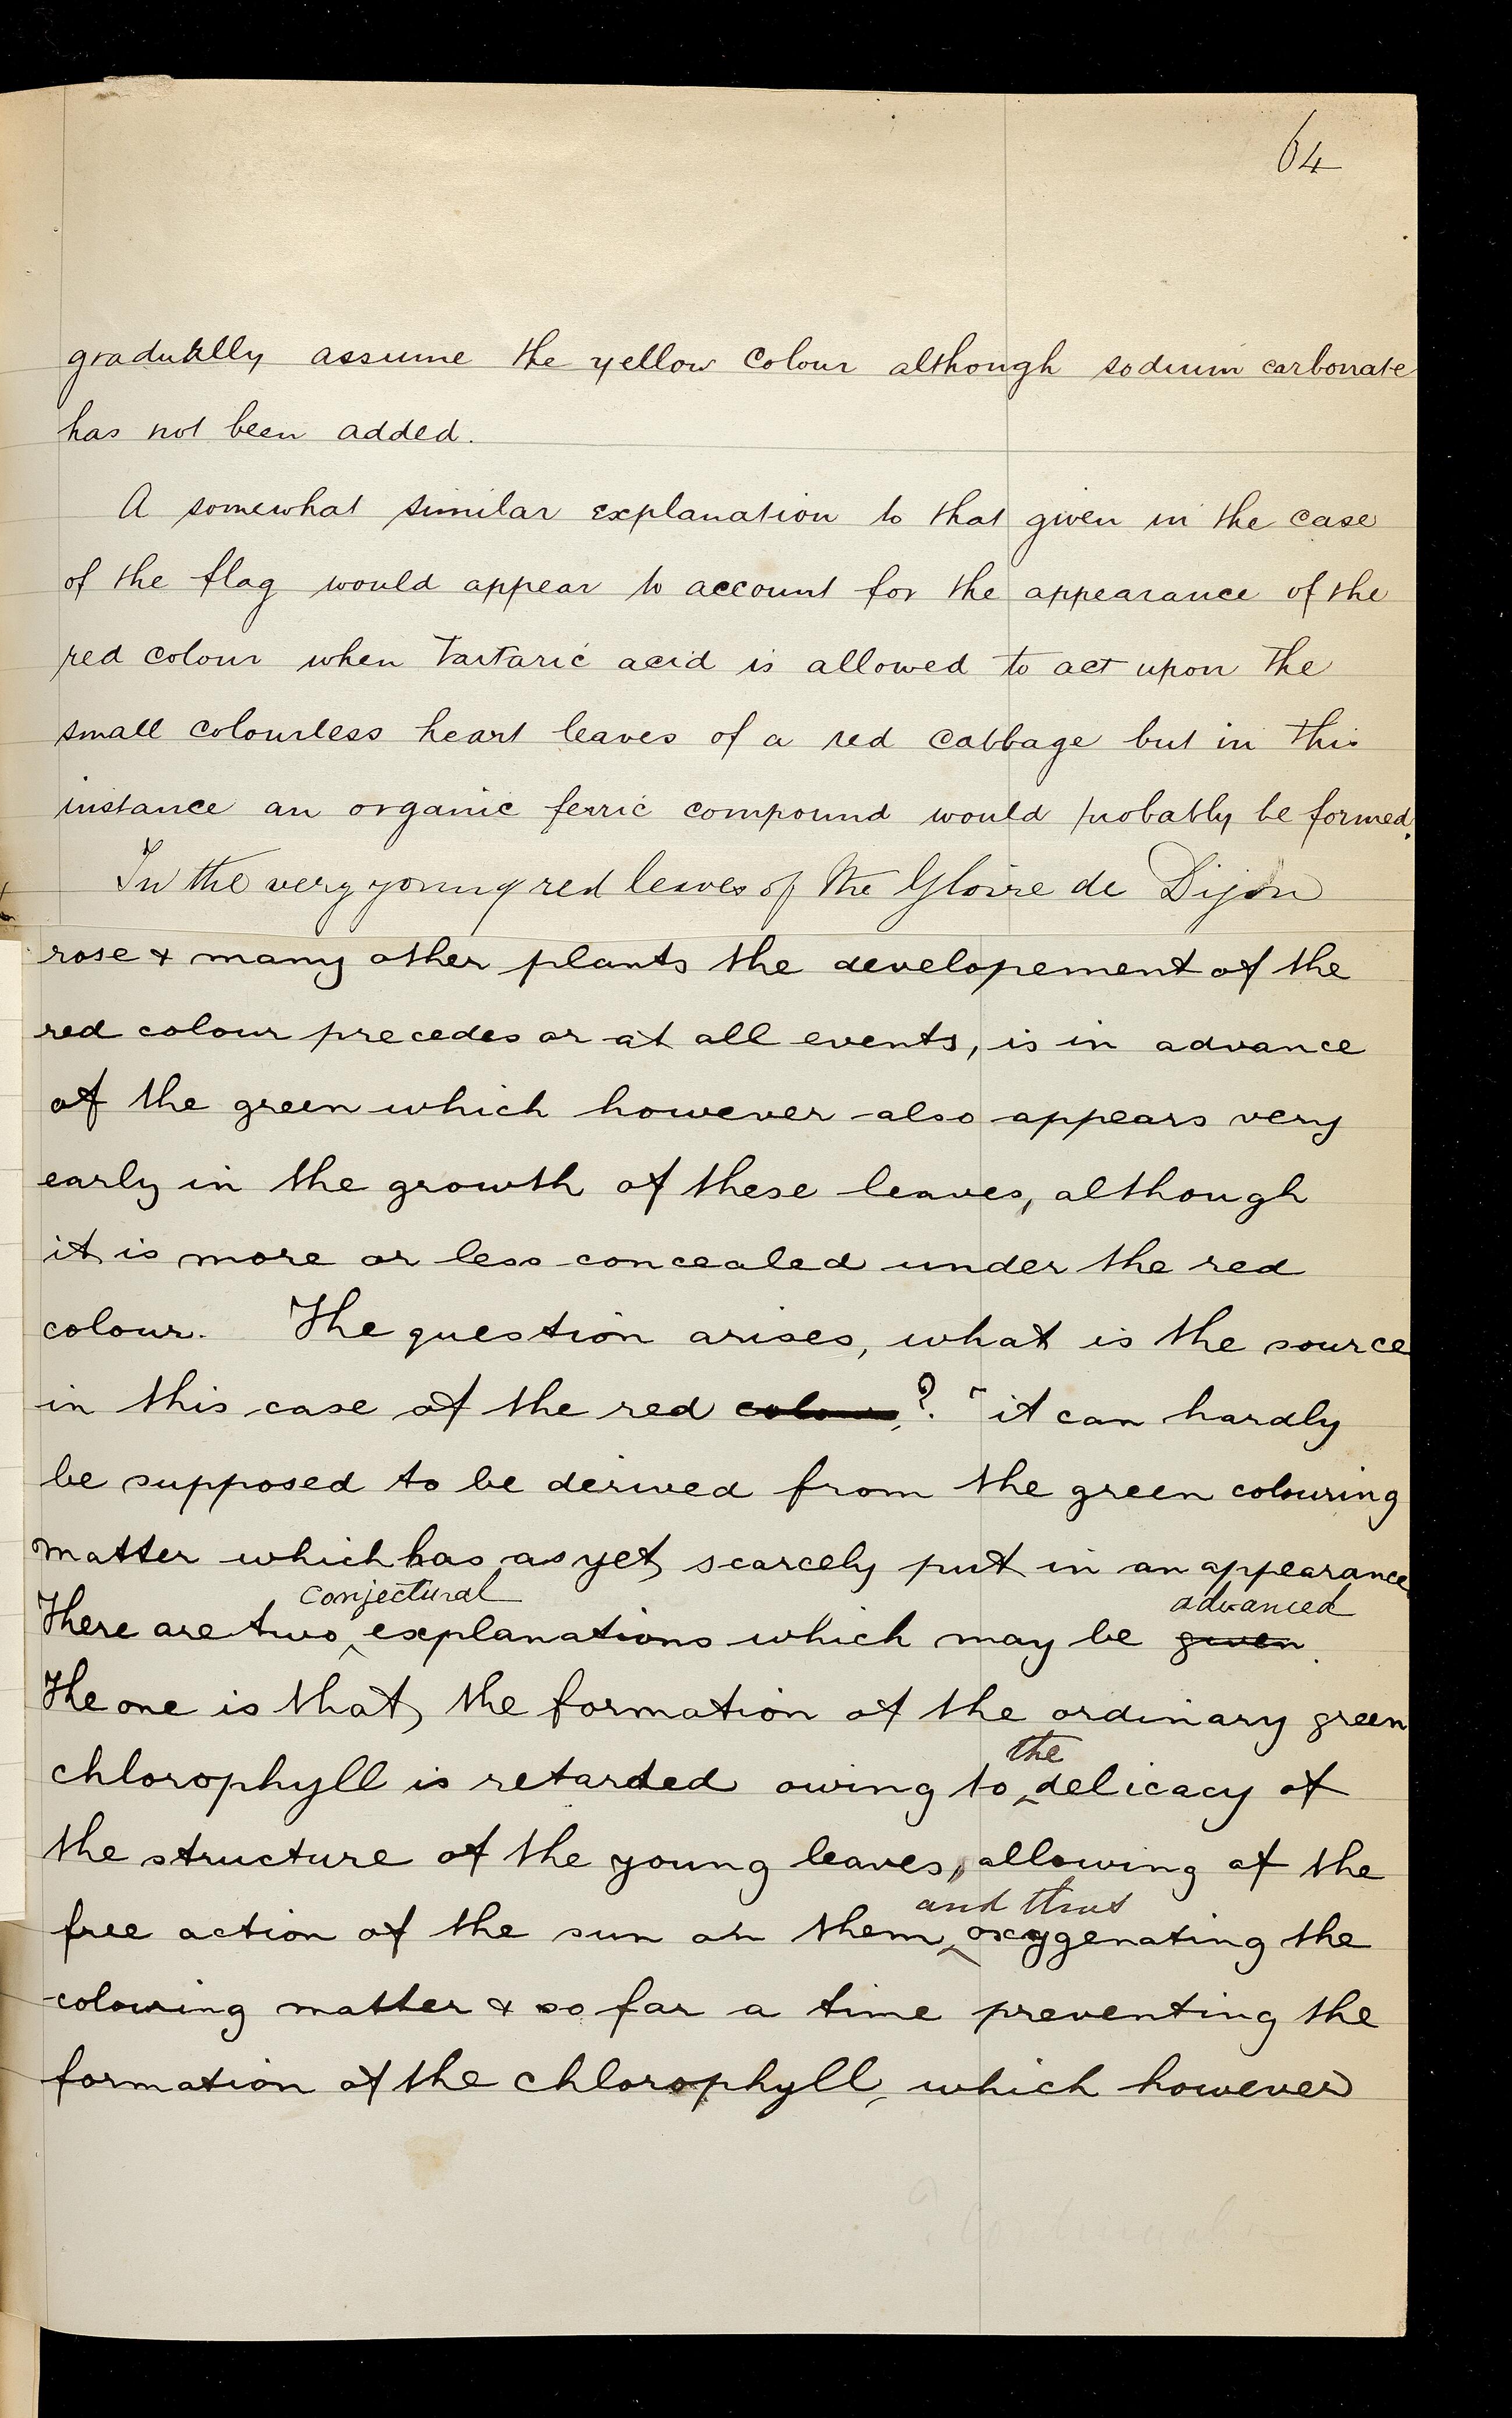 64
gradually assume the yellow colour although sodium carbonate
has not been added.
A somewhat similar explanation to that given in the case
of the flag would appear to account for the appearance of the
red colour when Tartaric acid is allowed to act upon the
small colourless heart leaves of a red cabbage but in this
instance an organic ferric compound would probably be formed.
In the very young red leaves of the Gloire de Dijon
rose & many other plants the developement of the
red colour precedes or at all events, is in advance
of the green which however also appears very
early in the growth of these leaves, although
it is more or less concealed under the red
colour. The question arises, what is the source
in this case of the red colour? it can hardly
be supposed to be derived from the green colouring
matter which has as yet scarcely put in an appearance
conjectural advanced
There are two explanations which may be given.
The one is that, the formation of the ordinary green
the
chlorophyll is retarded owing to delicacy of
the structure of the young leaves, allowing of the
and thus
free action of the sun on them, oxygenating the
colouring matter & so for a time preventing the
formation of the chlorophyll, which however